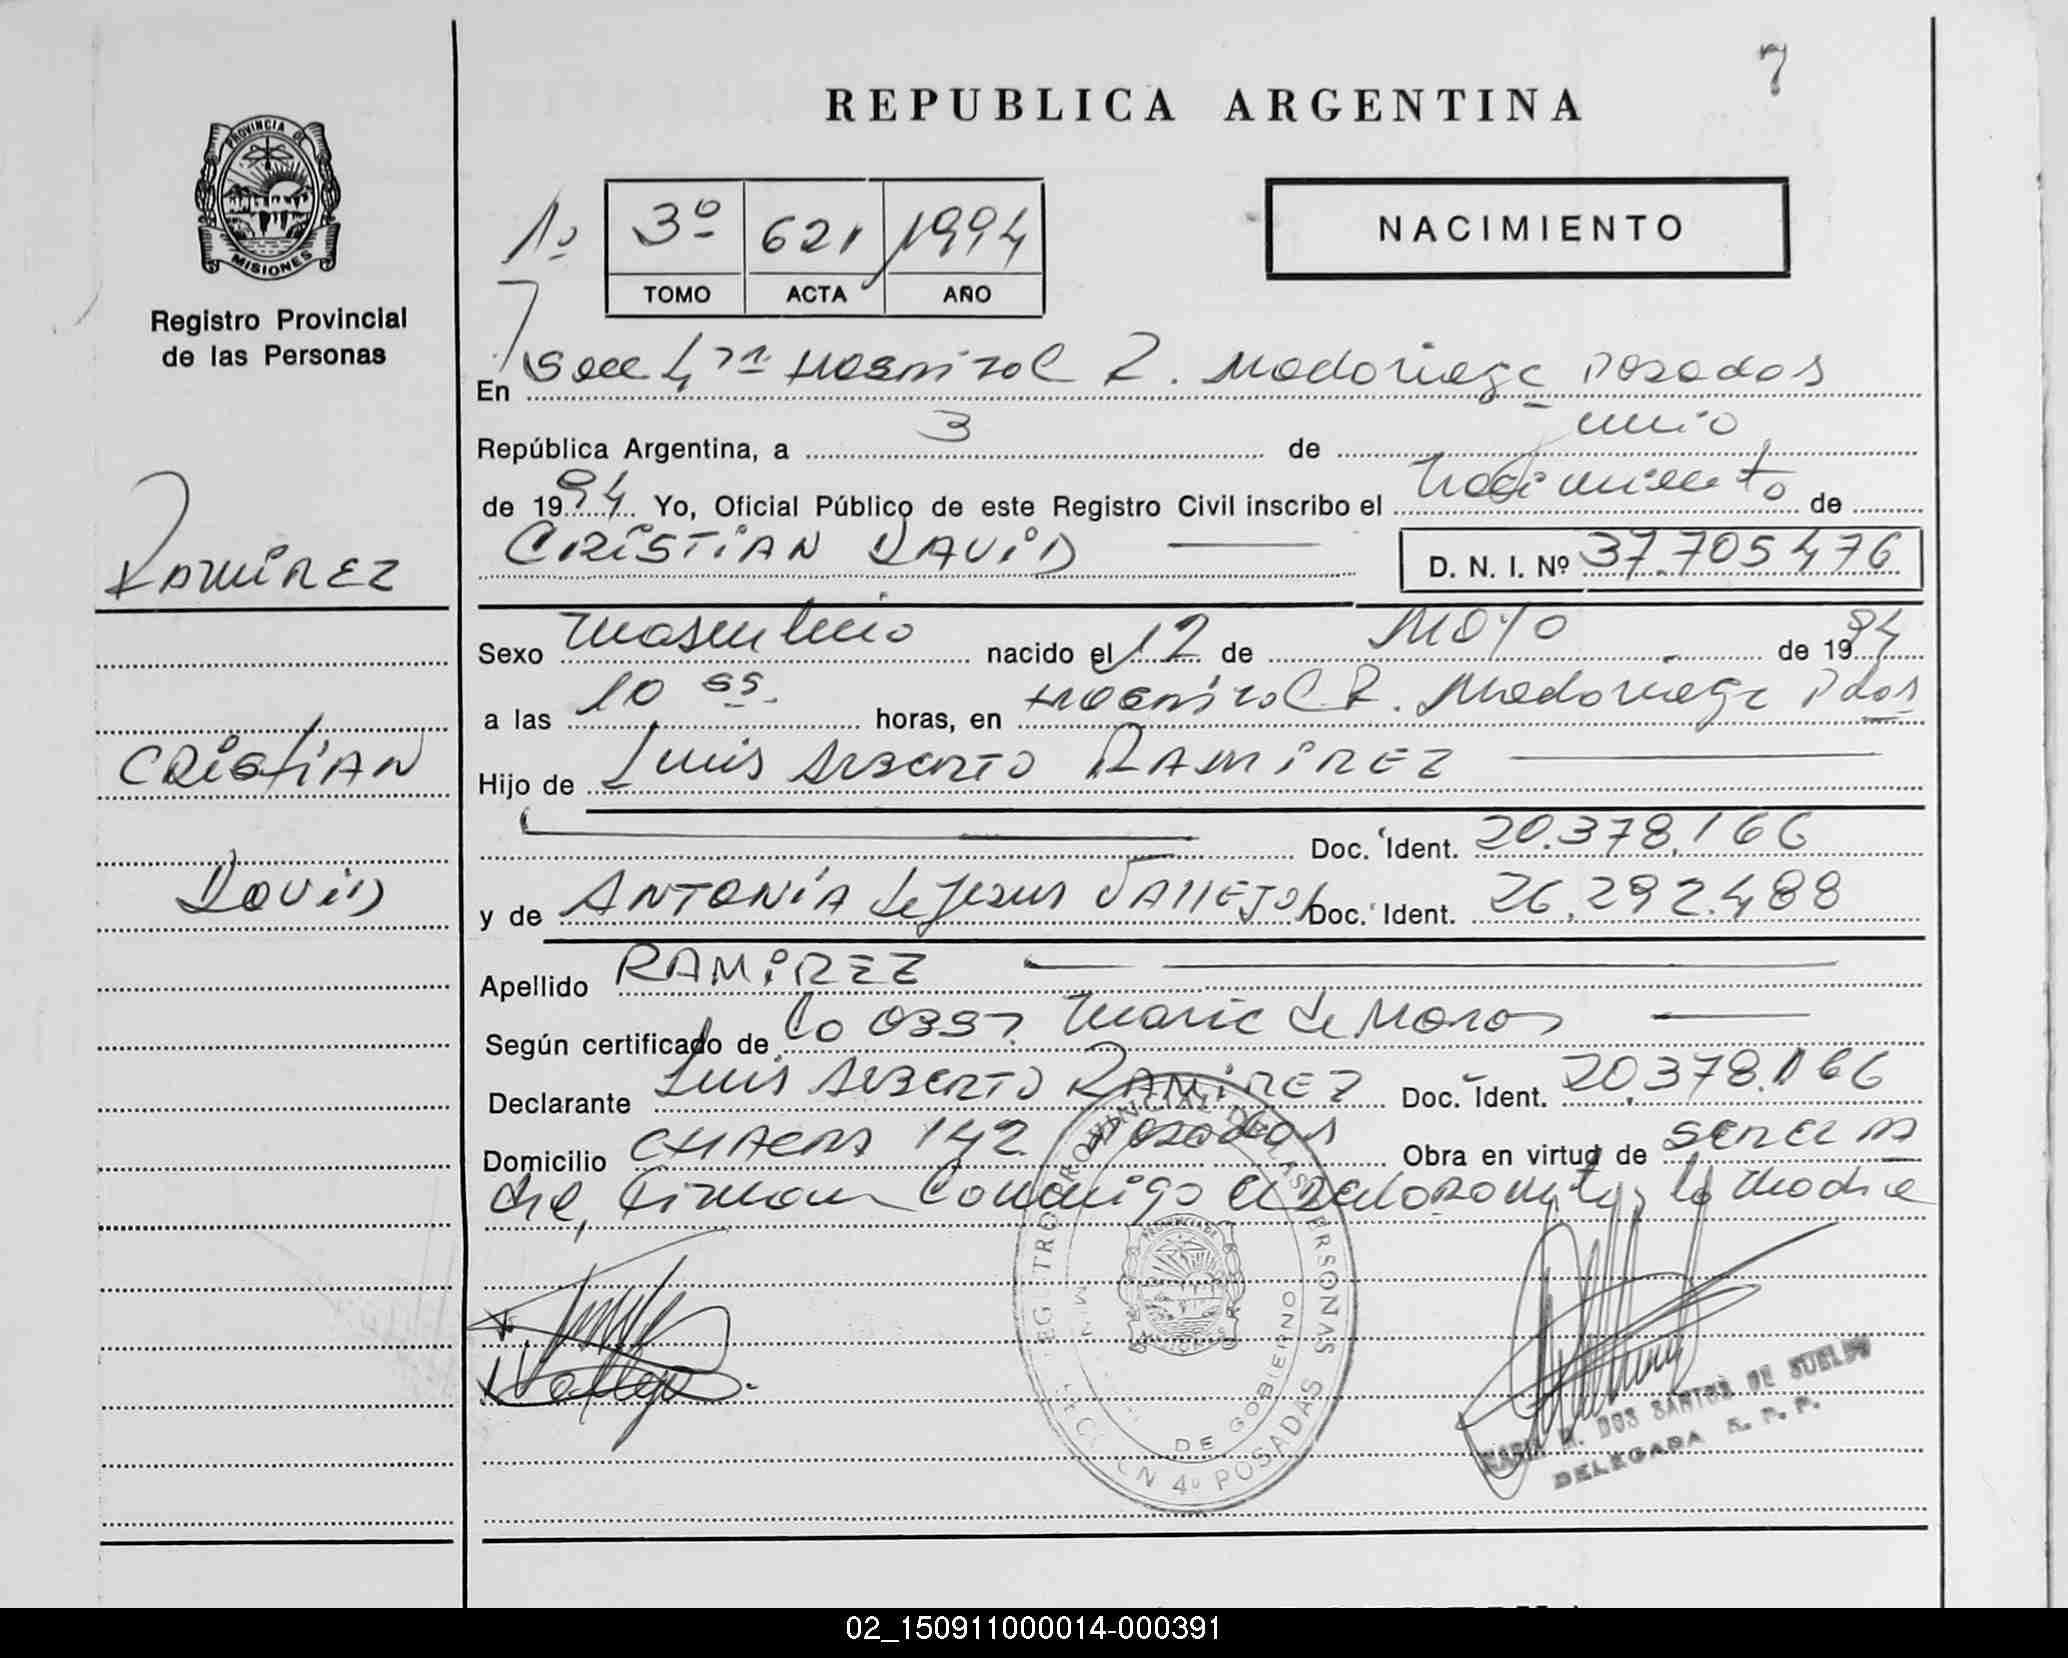 7
REPUBLICA ARGENTINA
PROVINCIA DE
MISIONES
Registro Provincial
de las Personas
1º 3º 621 1994
TOMO ACTA AÑO
NACIMIENTO
En Secc 4ta Hospital R. Madariaga Posadas
República Argentina, a 3 de Junio
de 1994 Yo, Oficial Público de este Registro Civil inscribo el Nacimiento de
CRISTIAN DAVID D. N. I. Nº 37.705.476
RAMIREZ
CRISTIAN
DAVID
Sexo Masculino nacido el 12 de Mayo de 1994
a las 10 55 horas, en Hospital R. Madariaga Pdas
Hijo de Luis ALBERTO RAMIREZ
Doc. Ident. 20.378.166
y de ANTONIA de Jesus VALLEJOS Doc. Ident. 26.292.488
Apellido RAMIREZ
Según certificado de la Obst. Maria de
Declarante Luis ALBERTO RAMIREZ Doc. Ident. 20.378.166
Domicilio CHACRA 142 Posadas Obra en virtud de ser el pa
dre, Firman Conmigo el Declarante y la Madre
REGISTRO PROVINCIAL DE LAS PERSONAS
MIN DE GOBIERNO
SECCION 4º POSADAS
PROVINCIA DE
MISIONES
MARIA R. DOS SANTOS DE SUELDO
DELEGADA R. P. P.
02_150911000014-000391